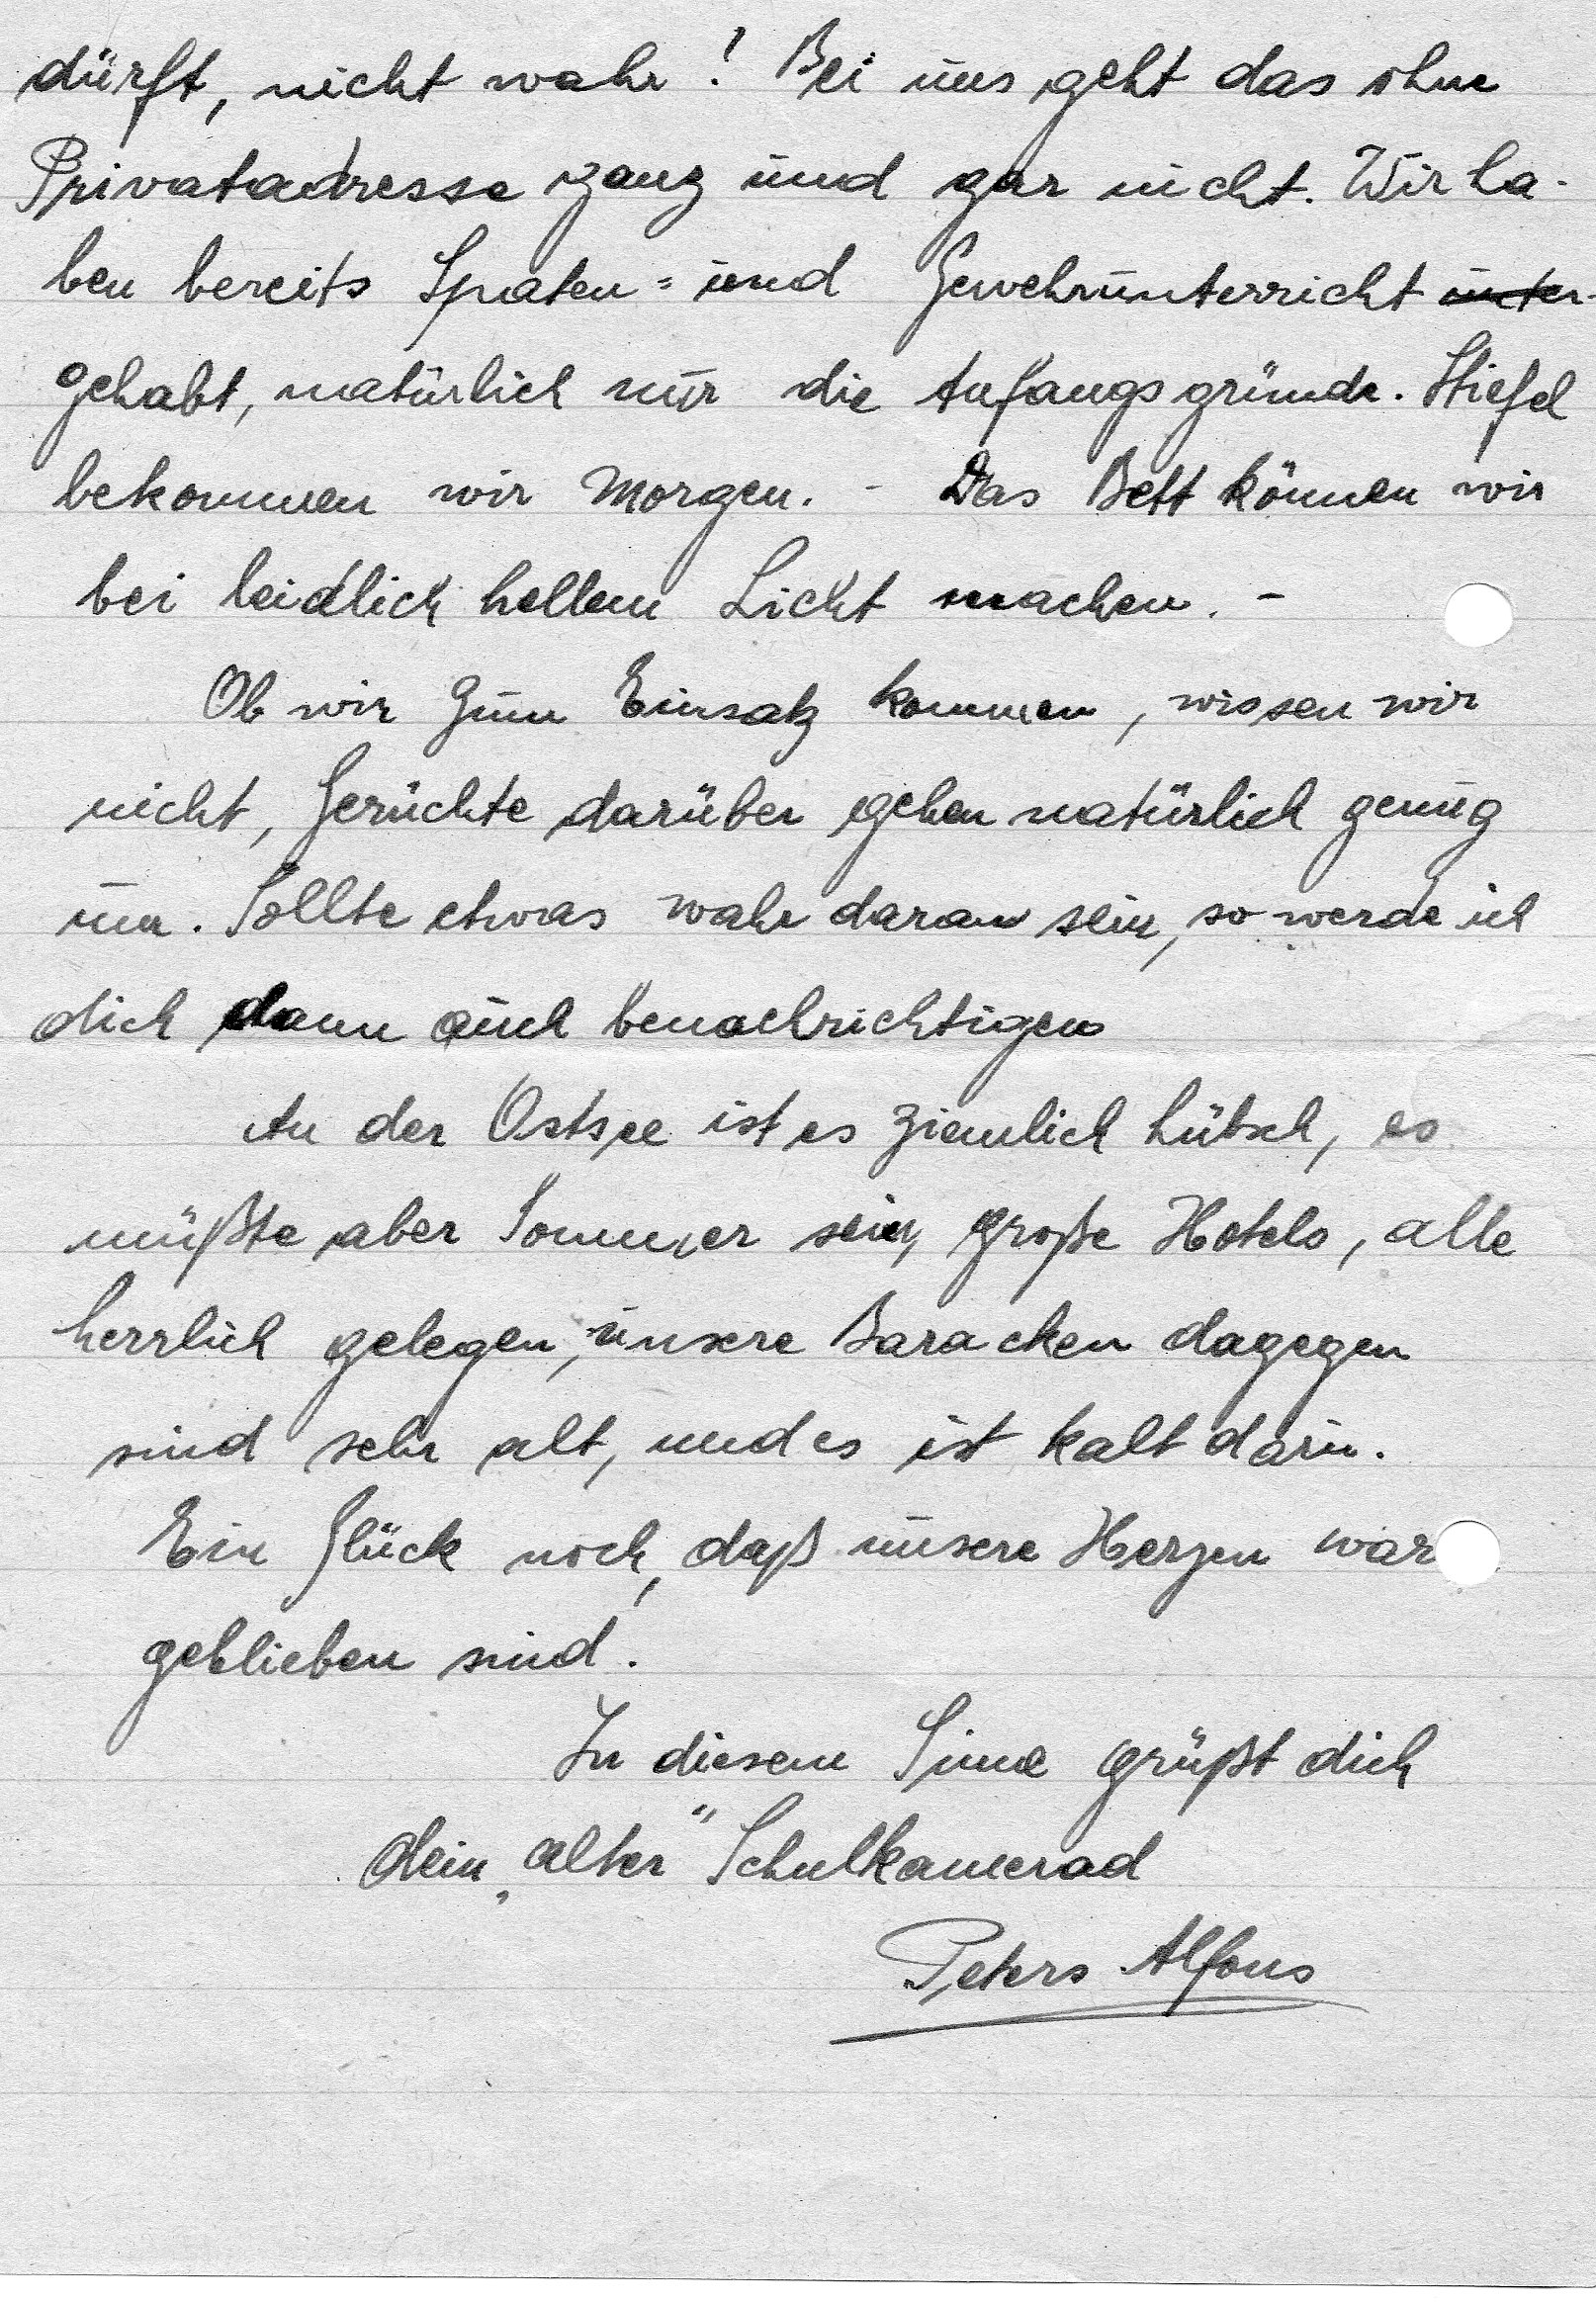 dürft, nicht wahr! Bei uns geht das ohne
Privatadresse ganz und gar nicht. Wir ha-
ben bereits Spaten= und Gewehrunterricht unter-
gehabt, natürlich nur die Anfangsgründe. Stiefel
bekommen wir Morgen. - Das Bett können wir
bei leidlich hellem Licht machen. -
Ob wir zum Einsatz kommen, wissen wir
nicht, Gerüchte darüber gehen natürlich genug
um. Sollte etwas wahr daran sein, so werde ich
dich dann auch benachrichtigen
An der Ostsee ist es ziemlich hübsch, es
müßte aber Sommer sein, große Hotels, alle
herrlich gelegen, unsere Baracken dagegen
sind sehr alt, und es ist kalt darin.
Ein Glück noch, daß unsere Herzen war
geblieben sind.
In diesem Sinne grüßt dich
dein „alter“ Schulkamerad
Peters Alfons